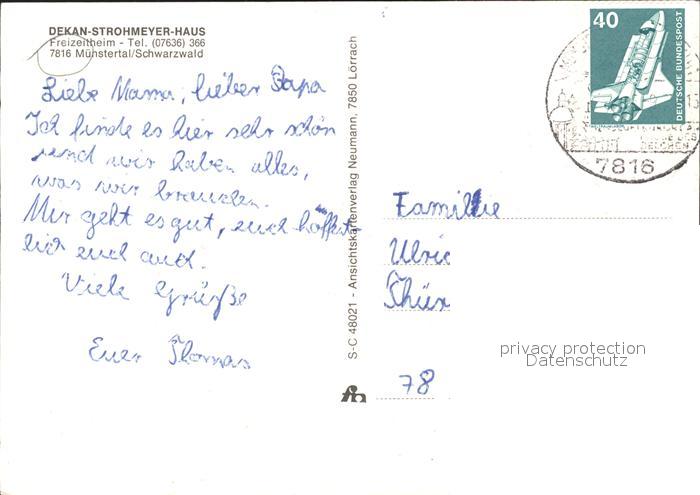 DEKAN-STROHMEYER-HAUS
Freizeitheim - Tel. (07636) 366
7816 Münstertal/Schwarzwald
Liebe Mama, lieber Papa
Ich finde es hier sehr schön
und wir haben alles,
was wir brauchen.
Mir geht es gut, euch hoffent-
lich euch auch.
Viele Grüße
Euer Thomas
S-C 48021 - Ansichtskartenverlag Neumann, 7850 Lörrach
40
DEUTSCHE BUNDESPOST
7816
Familie
Ulric
78
privacy protection
Datenschutz